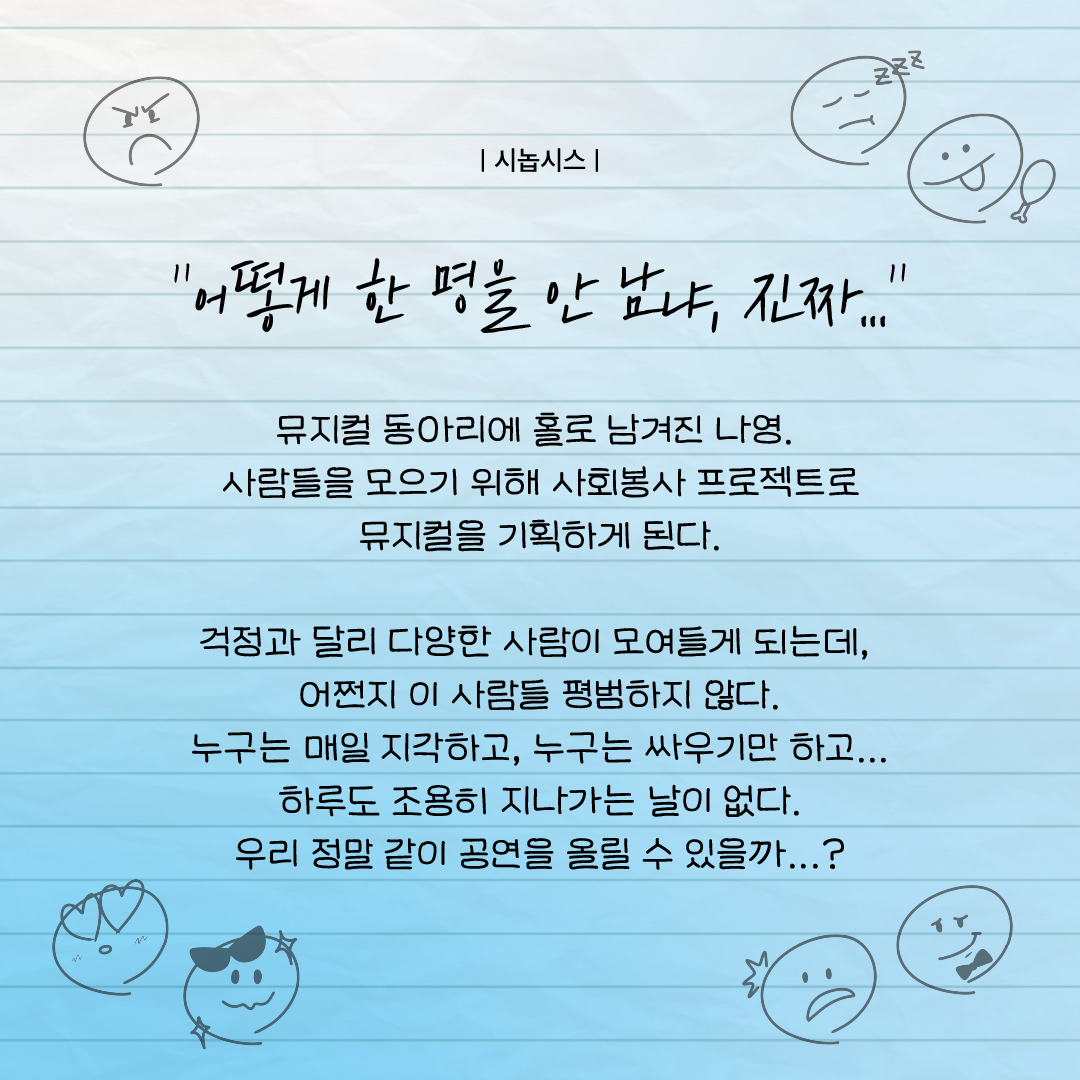 zzz
| 시놉시스 |
"어떻게 한 명을 안 남냐, 진짜..."
뮤지컬 동아리에 홀로 남겨진 나영.
사람들을 모으기 위해 사회봉사 프로젝트로
뮤지컬을 기획하게 된다.
걱정과 달리 다양한 사람이 모여들게 되는데,
어쩐지 이 사람들 평범하지 않다.
누구는 매일 지각하고, 누구는 싸우기만 하고...
하루도 조용히 지나가는 날이 없다.
우리 정말 같이 공연을 올릴 수 있을까...?